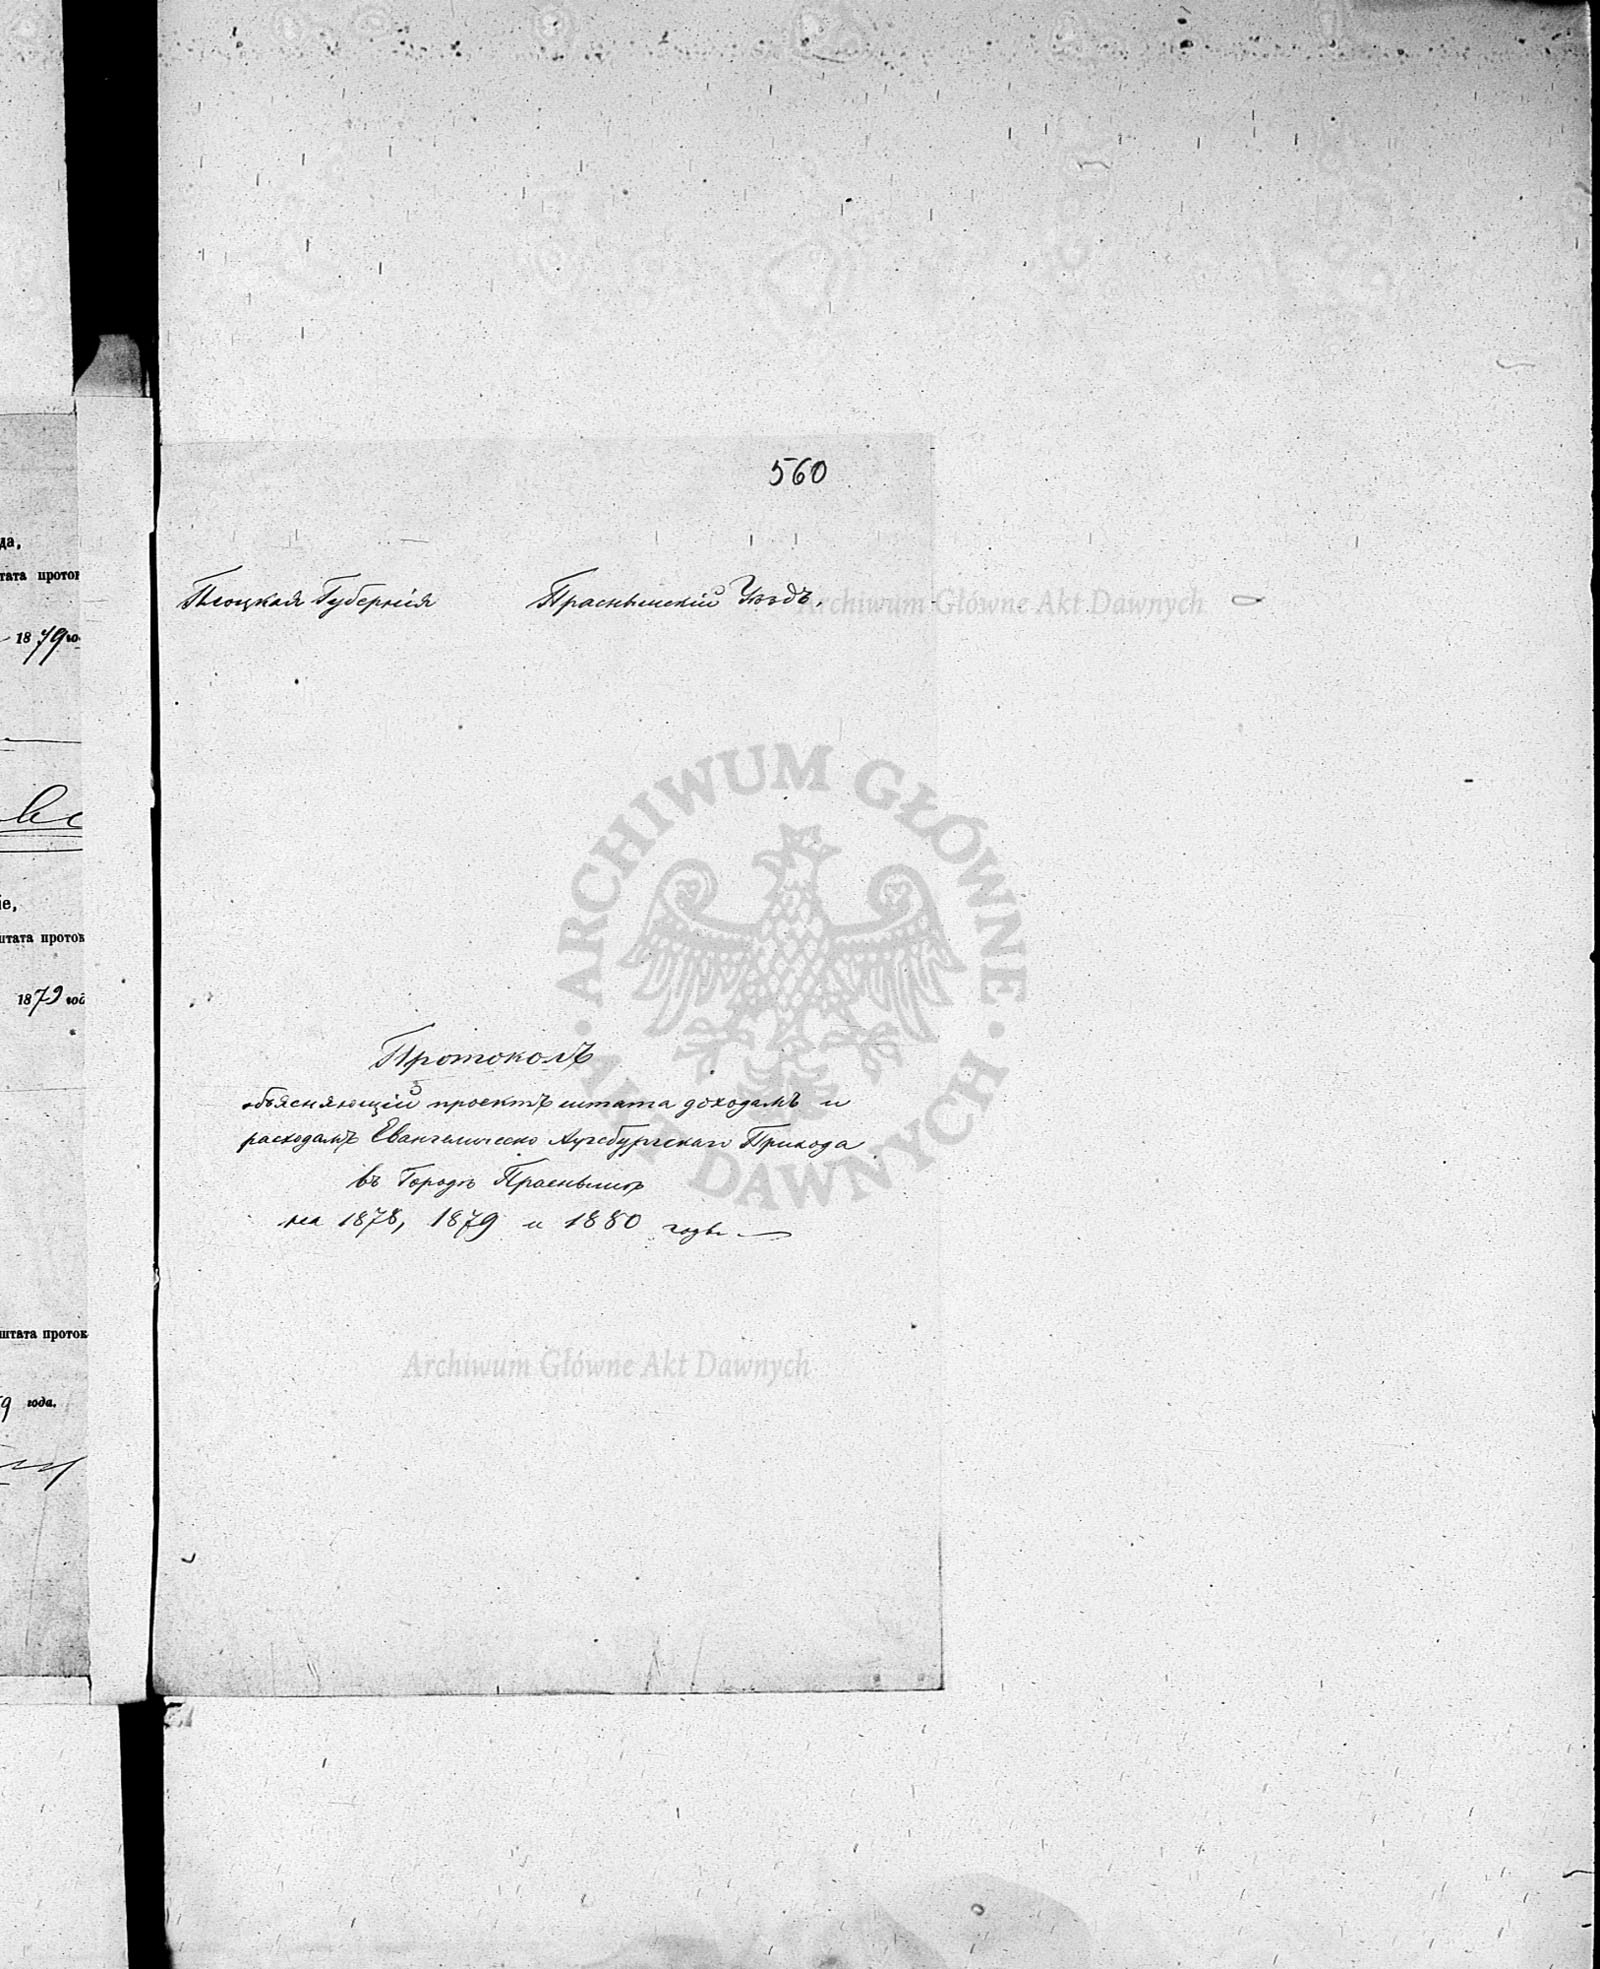 560
Плоцкая Губернія Праснышскій Уѣздъ.
Протоколъ
объясняющій проектъ штата доходамъ и
расходамъ Евангелическо Аугсбургскаго Прихода
въ Городѣ Праснышѣ
на 1878, 1879 и 1880 годы
да,
тата проток
1879 го
іе,
штата проток
1879 год
штата проток
9 года.
ARCHIWUM GŁÓWNE AKT DAWNYCH
Archiwum Główne Akt Dawnych
Archiwum Główne Akt Dawnych